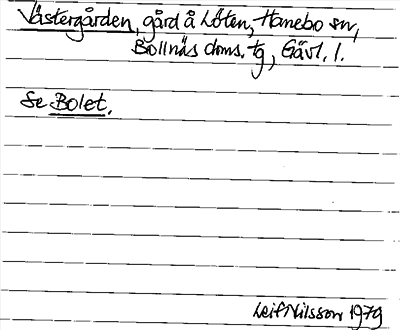 Västergården, gård å Löten, Hanebo sn,
Bollnäs doms. tg, Gävl. l.
Se Bolet.
Leif Nilsson 1979